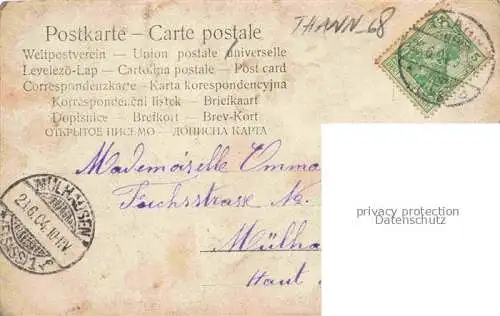 Postkarte – Carte postale
THANN_68
Weltpostverein – Union postale universelle
Levelező-Lap – Cartolina postale – Post card
Correspondenzkarte – Karta korespondencyjna
Korrespondenční lístek – Briefkaart
Dopisnice – Brefkort – Brev-Kort
ОТКРЫТОЕ ПИСЬМО – ДОПИСНА КАРТА
Mademoiselle Emma
MÜLHAUSEN
21.6.04.
privacy protection
Datenschutz
Mülha
Haut